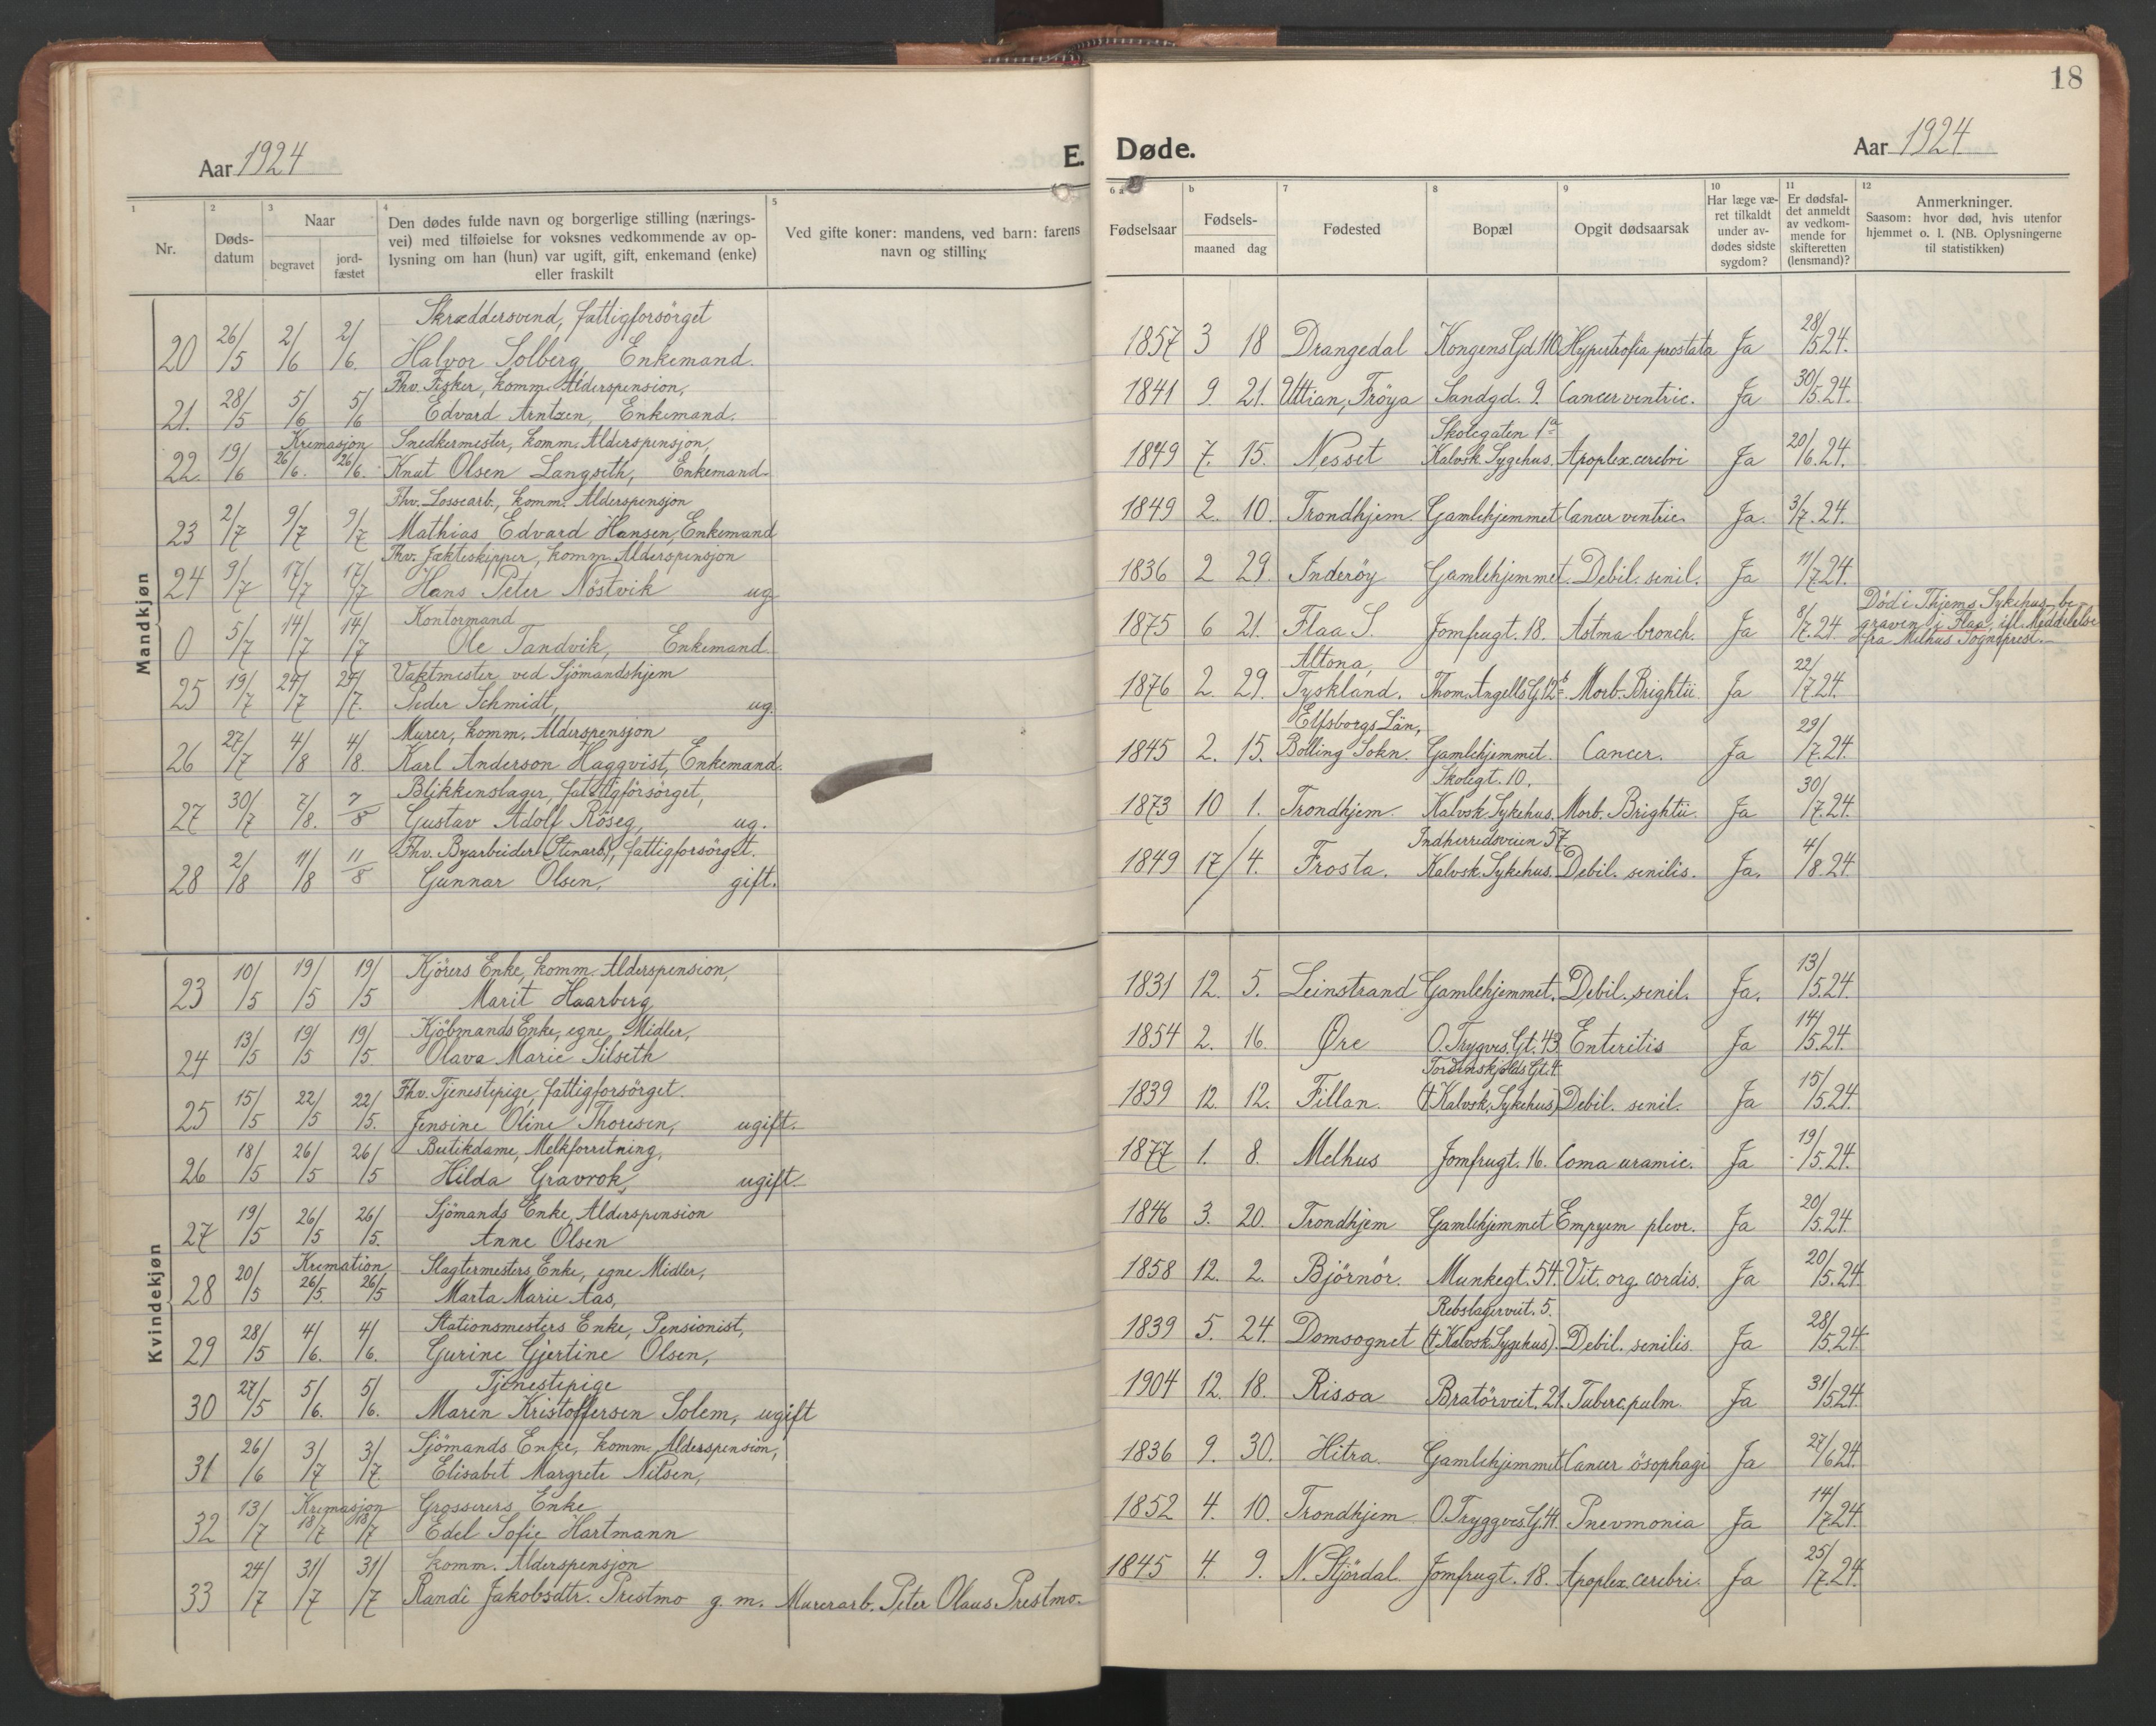 18
Aar 1924
E. Døde.
Aar 1924
1 2 3 4 5 6 a b 7 8 9 10 11 12
Nr.
Døds-
datum
Naar
begravet
jord-
fæstet
Den dødes fulde navn og borgerlige stilling (nærings-
vei) med tilføielse for voksnes vedkommende av op-
lysning om han (hun) var ugift, gift, enkemand (enke)
eller fraskilt
Ved gifte koner: mandens, ved barn: farens
navn og stilling
Fødselsaar
Fødsels-
maaned dag
Fødested
Bopæl
Opgit dødsaarsak
Har læge væ-
ret tilkaldt
under av-
dødes sidste
sygdom?
Er dødsfal-
det anmeldt
av vedkom-
mende for
skifteretten
(lensmand)?
Anmerkninger.
Saasom: hvor død, hvis utenfor
hjemmet o. l. (NB. Oplysningerne
til statistikken)
Mandkjøn
Skræddersvend, fattigforsörget
20 26/5 2/6 2/6. Halvor Solberg, Enkemand. 1857 3 18 Drangedal Kongens Gd. 110 Hypertrofia prostata Ja 28/5 24.
Fhv. Fisker, komm. Alderspension,
21. 28/5 5/6 5/6 Edvard Arntzen, Enkemand. 1841 9. 21. Uttian, Fröya Sandgd. 9. Cancer ventric. Ja 30/5. 24.
Kremasjon Snedkermester, komm. Alderspensjon, Skolegaten 1a
22. 19/6 26/6. 26/6. Knut Olsen Langseth, Enkemand. 1849 7. 15. Nesset Kalvsk. Sygehus. Apoplex. cerebri Ja 20/6. 24.
Fhv. Lossearb., komm. Alderspensjon
23 2/7 9/7 9/7 Mathias Edvard Hansen, Enkemand 1849 2. 10. Trondhjem. Gamlehjemmet Cancer ventric. Ja. 3/7. 24.
Fhv. Jækteskipper, komm. Alderspensjon
24 9/7 17/7 17/7 Hans Peter Nöstvik ug. 1836 2 29. Inderöy Gamlehjemmet. Debil. senil. Ja 11/7 24.
Kontormand Död i Thjems Sykehus, be-
0 5/7 14/7 14/7 Ole Tandvik, Enkemand 1875 6 21. Flaa S. Jomfrugt. 18. Astma bronch. Ja 8/7. 24. graven i Flaa, ifl. Meddelelse
fra Melhus Sogneprest.
Vaktmester ved Sjömandshjem Altona,
25 19/7 24/7 24/7. Peder Schmidt, ug. 1876 2. 29. Tyskland. Thom. Angells G. 12b Morb. Brightii Ja 22/7 24.
Murer, komm. Alderspensjon Elfsborgs Län,
26 27/7 4/8 4/8. Karl Anderson Haggvist, Enkemand. 1845 2. 15. Bolling Sokn. Gamlehjemmet. Cancer. Ja 29/7. 24.
Blikkenslager, fattigförsörget, Skolegt. 10.
27 30/7 7/8. 7/8 Gustav Adolf Röseg, ug. 1873 10 1. Trondhjem. Kalvsk. Sykehus. Morb. Brightii. Ja 30/7. 24.
Fhv. Byarbeider (Stenarb.), fattigforsörget. Indherredsveien 57.
28 2/8 11/8 11/8 Gunnar Olsen, gift. 1849 17/4. Frosta. Kalvsk. Sykehus. Debil. senilis. Ja. 4/8. 24.
Kvindekjøn
Kjörers Enke, komm. Alderspension,
23 10/5 19/5 19/5 Marit Haarberg 1831 12. 5. Leinstrand Gamlehjemmet. Debil. senil. Ja. 13/5. 24.
Kjöbmands Enke, egne Midler,
24 13/5 19/5 19/5. Olava Marie Silseth 1854 2. 16. Øre O. Trygves. Gt. 43 Enteritis Ja 14/5. 24.
Fhv. Tjenestepige, fattigforsörget. Tordenskjolds Gt. 4.
25 15/5 22/5 22/5. Jensine Oline Thoresen, ugift. 1839 12. 12. Fillan. († Kalvsk. Sykehus) Debil. senil. Ja 15/5. 24.
Butikdame, Melkforretning,
26 18/5 26/5 26/5 Hilda Gravrok, ugift. 1877 1. 8. Melhus Jomfrugt. 16. Coma uramic. Ja 19/5. 24.
Sjömands Enke, Alderspension
27 19/5 26/5 26/5. Anne Olsen 1846 3. 20. Trondhjem Gamlehjemmet Empyem plevr. Ja 20/5. 24.
Kremation Slagtermesters Enke, egne Midler,
28 20/5 26/5. 26/5 Marta Marie Aas, 1858 12. 2. Björnör. Munkegt. 54. Vit. org. cordis. Ja 20/5. 24
Stationsmesters Enke, Pensionist, Rebslagerveit. 5.
29 28/5 4/6. 4/6. Gurine Gjertine Olsen, 1839 5. 24. Domsognet († Kalvsk. Sygehus). Debil. senilis. Ja 28/5. 24.
Tjenestepige
30 27/5 5/6. 5/6. Maren Kristoffersen Solem, ugift 1904 12. 18. Rissa Bratörveit. 21. Tuberc. pulm. Ja 31/5 24.
Sjömands Enke, komm. Alderspension,
31 26/6 3/7 3/7. Elisabet Margrete Nilsen, 1836 9. 30. Hitra. Gamlehjemmet Cancer ösophagi Ja 27/6 24.
Kremasjon Grosserers Enke
32 13/7 18/7 18/7 Edel Sofie Hartmann 1852 4. 10. Trondhjem O. Tryggves. G. 4. Pnevmonia Ja 14/7. 24.
komm. Alderspensjon
33 24/7 31/7 31/7 Randi Jakobsdtr. Prestmo g. m. Murerarb. Peter Olaus Prestmo. 1845 4. 9. N. Stjördal. Jomfrugt. 18. Apoplex. cerebri. Ja 25/7. 24.